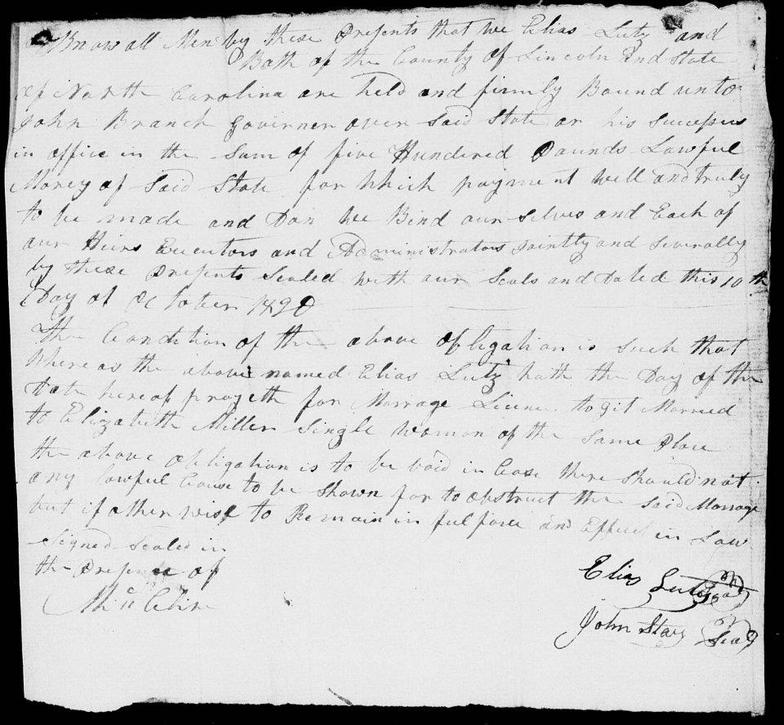 Know all Men by these Presents that we Elias Lutz and
Both of the County of Lincoln and State
of North Carolina are held and firmly Bound unto
John Branch Governer over Said State or his Successus
in office in the Sum of five Hundered Pounds Lawful
Money of Said State for which payment well and truly
to be made and Don we Bind our Selves and Each of
our Heirs Executors and Administrators Jointly and Severally
by these Presents Sealed with our Seals and Dated this 10th
Day of October 1820
The Condition of the above obligation is Such that
Where as the above named Elias Lutz hath the Day of the
Date hereof for Marrage to git Married
to Elizabeth Miller Single Woman of the Same Place
the above obligation is to be void in Case there Should not
any lawful Cause to be Shown for to obstruct the Said Marrage
but if other wise to Remain in ful force and Effect in Law
Signed Sealed in
the Presence of
Elias Lutz Seal
John Seal